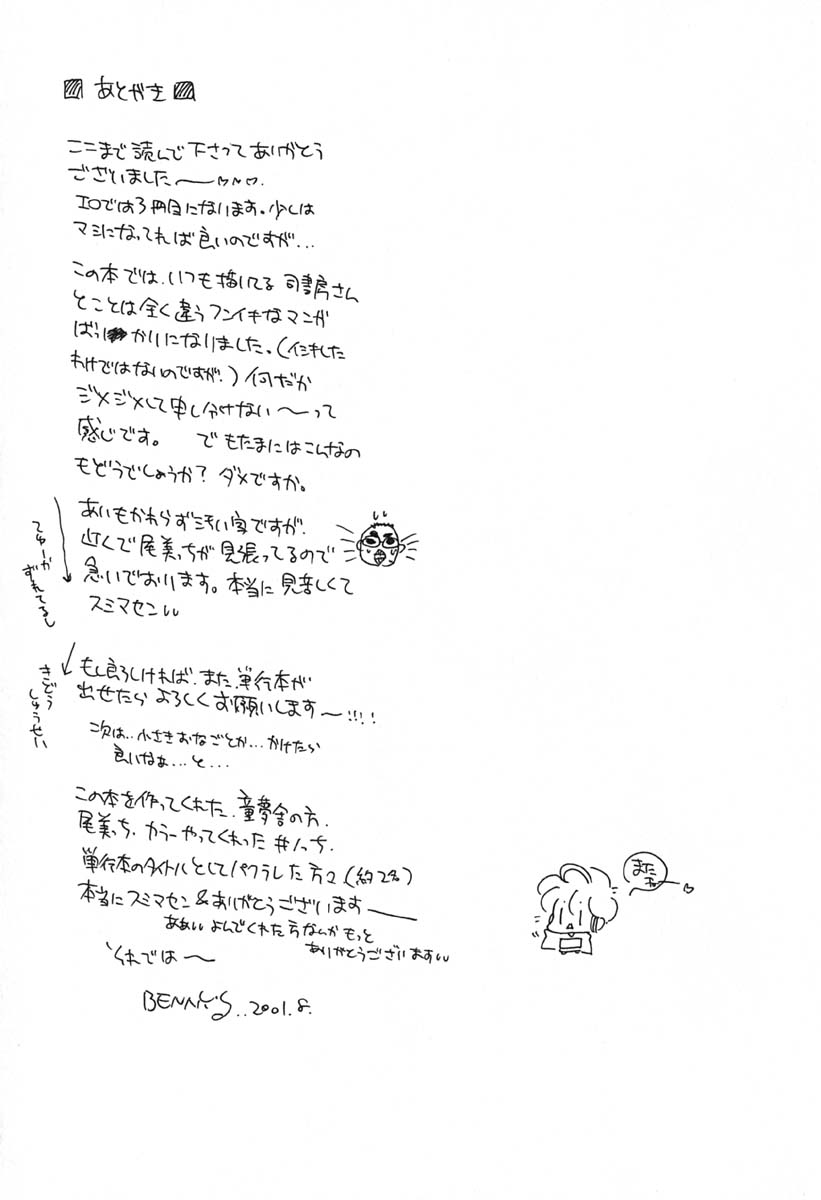 あとがき
ここまで読んで下さってありがとう
ございました〜♡♡♡.
エロでは3冊目になります。少しは
マシになってれば良いのですが...
この本では、いつも描いてる司書房さん
とことは全く違うフンイキなマンガ
ばっかりになりました。(イシキした
わけではないのですが。)何だか
ジメジメして申し分けない〜って
感じです。 でもたまにはこんなの
もどうでしょうか? ダメですか。
あいもかわらず汚い字ですが、
近くで尾美っちが見張ってるので
急いでおります。本当に見苦しくて
スミマセン
てゆーか
ずれてるし
もし良ろしければ、また、単行本が
出せたらよろしくお願いします〜!!!!
きどう
しゅうせい
次は..小さきおなごとか...かけたら
良いなぁ...と...
この本を作ってくれた、童夢舎の方、
尾美っち、カラーやってくれった
単行本のタイトルとしてパクラレした方々(約2名)
本当にスミマセン&ありがとうございます
よんでくれた方なんかもっと
ありがとうございます
それでは〜
BENNY'S..2001.8.
また
ねー♡